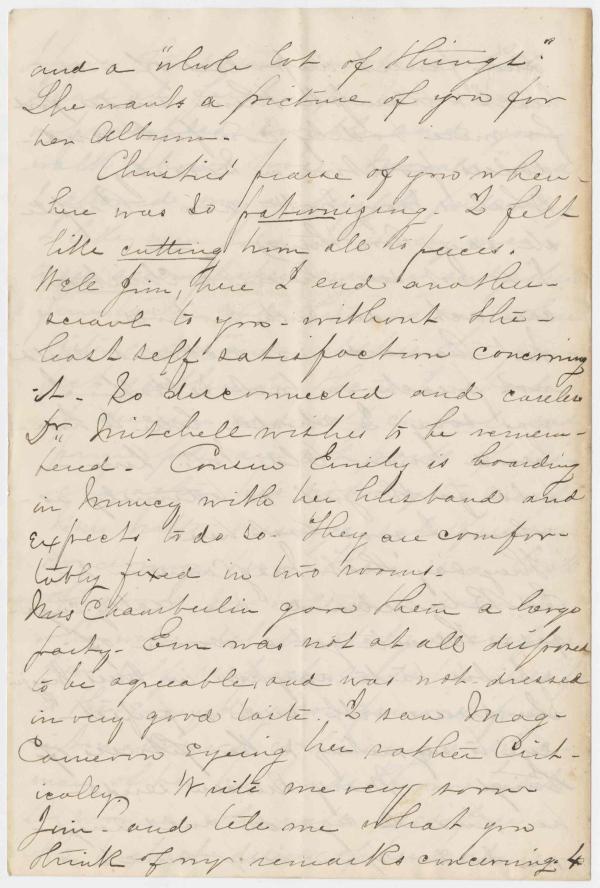 and a "whole lot of things".
She wants a picture of you for
her Album.
Christies' praise of you when-
here was so patronizing. I felt
like cutting him all to pieces.
Well Jim, here I end another-
scrawl to you - without the-
least self satisfaction concerning
it - So disconnected and careless
Dr. Mitchell wishes to be remem-
bered - Cousin Emily is boarding
in Muncy with her husband and
expects to do so. They are comfor-
tably fixed in two rooms.
Mrs Chamberlin gave them a large
party - Em was not at all disposed
to be agreeable, and was not dressed
in very good taste. I saw Mag-
Cameron eyeing her rather Crit-
ically. Write me very soon
Jim - and tell me what you
think of my remarks concerning